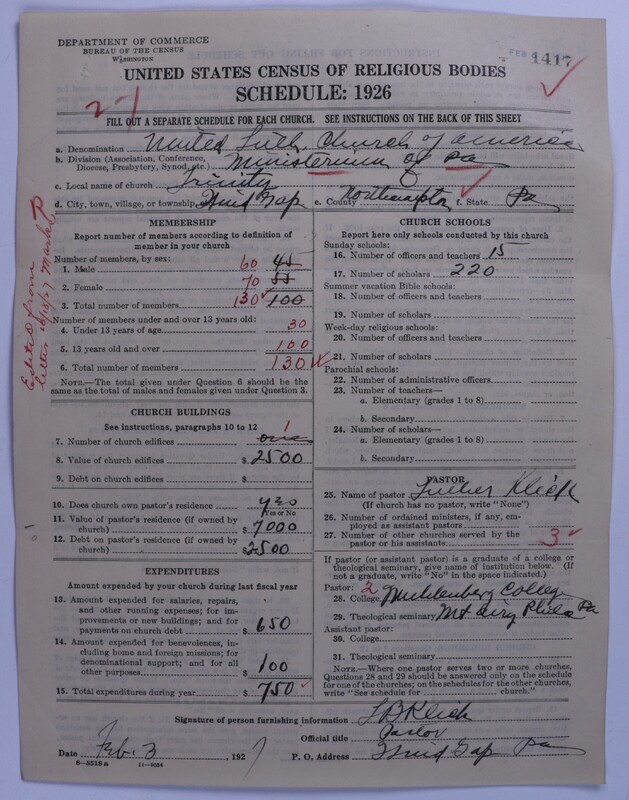 DEPARTMENT OF COMMERCE
BUREAU OF THE CENSUS
WASHINGTON
FEB
1417
UNITED STATES CENSUS OF RELIGIOUS BODIES
SCHEDULE: 1926
2-1
FILL OUT A SEPARATE SCHEDULE FOR EACH CHURCH. SEE INSTRUCTIONS ON THE BACK OF THIS SHEET
a. Denomination United Luth. Church of America
b. Division (Association, Conference, Diocese, Presbytery, Synod, etc.) Ministerium of Pa
c. Local name of church Trinity
d. City, town, village, or township Wind Gap e. County Northampton f. State Pa
Edited from letter
MEMBERSHIP
Report number of members according to definition of member in your church
Number of members, by sex:
1. Male 60 45
2. Female 70 55
3. Total number of members 130 100
Number of members under and over 13 years old:
4. Under 13 years of age 30
5. 13 years old and over 100
6. Total number of members 130
NOTE.—The total given under Question 6 should be the same as the total of males and females given under Question 3.
CHURCH BUILDINGS
See instructions, paragraphs 10 to 12
7. Number of church edifices one 1
8. Value of church edifices $ 2500
9. Debt on church edifices $
10. Does church own pastor's residence yes
Yes or No
11. Value of pastor's residence (if owned by church) $ 7000
12. Debt on pastor's residence (if owned by church) $ 2500
EXPENDITURES
Amount expended by your church during last fiscal year
13. Amount expended for salaries, repairs, and other running expenses; for improvements or new buildings; and for payments on church debt $ 650
14. Amount expended for benevolences, including home and foreign missions; for denominational support; and for all other purposes $ 100
15. Total expenditures during year $ 750
CHURCH SCHOOLS
Report here only schools conducted by this church
Sunday schools:
16. Number of officers and teachers 15
17. Number of scholars 220
Summer vacation Bible schools:
18. Number of officers and teachers
19. Number of scholars
Week-day religious schools:
20. Number of officers and teachers
21. Number of scholars
Parochial schools:
22. Number of administrative officers
23. Number of teachers—
a. Elementary (grades 1 to 8)
b. Secondary
24. Number of scholars—
a. Elementary (grades 1 to 8)
b. Secondary
PASTOR
25. Name of pastor Luther Klick
(If church has no pastor, write "None")
26. Number of ordained ministers, if any, employed as assistant pastors
27. Number of other churches served by the pastor or his assistants 3
If pastor (or assistant pastor) is a graduate of a college or theological seminary, give name of institution below. (If not a graduate, write "No" in the space indicated.)
Pastor: 2
28. College Muhlenberg College
29. Theological seminary Mt Airy Phila Pa
Assistant pastor:
30. College
31. Theological seminary
NOTE.—Where one pastor serves two or more churches, Questions 28 and 29 should be answered only on the schedule for one of the churches; on the schedules for the other churches, write "See schedule for ______ church."
Signature of person furnishing information L B Klick
Official title Pastor
Date Feb. 3 1927 P. O. Address Wind Gap Pa
8—5518a 11—9264